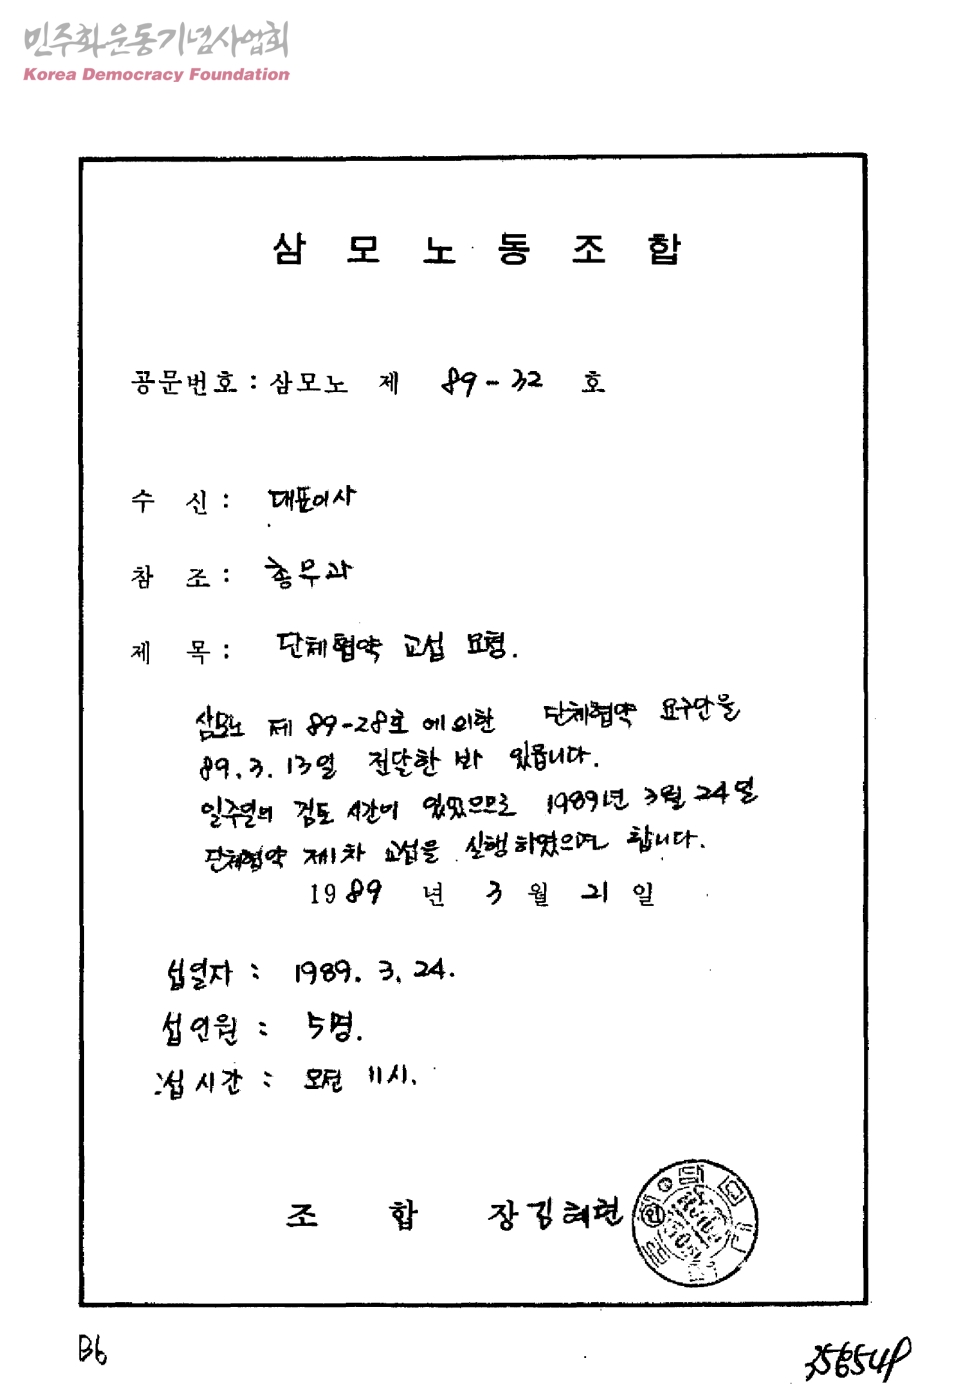 민주화운동기념사업회
Korea Democracy Foundation
삼 모 노 동 조 합
공문번호 : 삼모노 제 89-32 호
수 신 : 대표이사
참 조 : 총무과
제 목 : 단체협약 교섭 요청.
삼모노 제 89-28호 에 의한 단체협약 요구안을
89. 3. 13일 전달한 바 있읍니다.
일주일의 검토 시간이 있었으므로 1989년 3월 24일
단체협약 제1차 교섭을 실행하였으면 합니다.
1989 년 3 월 21 일
섭일자 : 1989. 3. 24.
섭인원 : 5명.
섭시간 : 오전 11시.
조 합 장 김혜현
B6